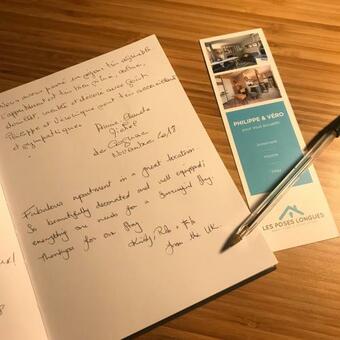 Nous avons passé un séjour très agréable
L'appartement est très bien situé, calme,
douillet, meublé et décoré avec goût.
Philippe et Véronique sont très accueillants
et sympathiques.
Anne Claude
Michel
de
Novembre 2018
Fabulous apartment in a great location
So beautifully decorated and well equipped;
everything one needs for a successful stay.
Thankyou for our stay
Kirsty, Rob +
from the UK.
PHILIPPE & VÉRO
pour vous accueillir
LES POSES LONGUES